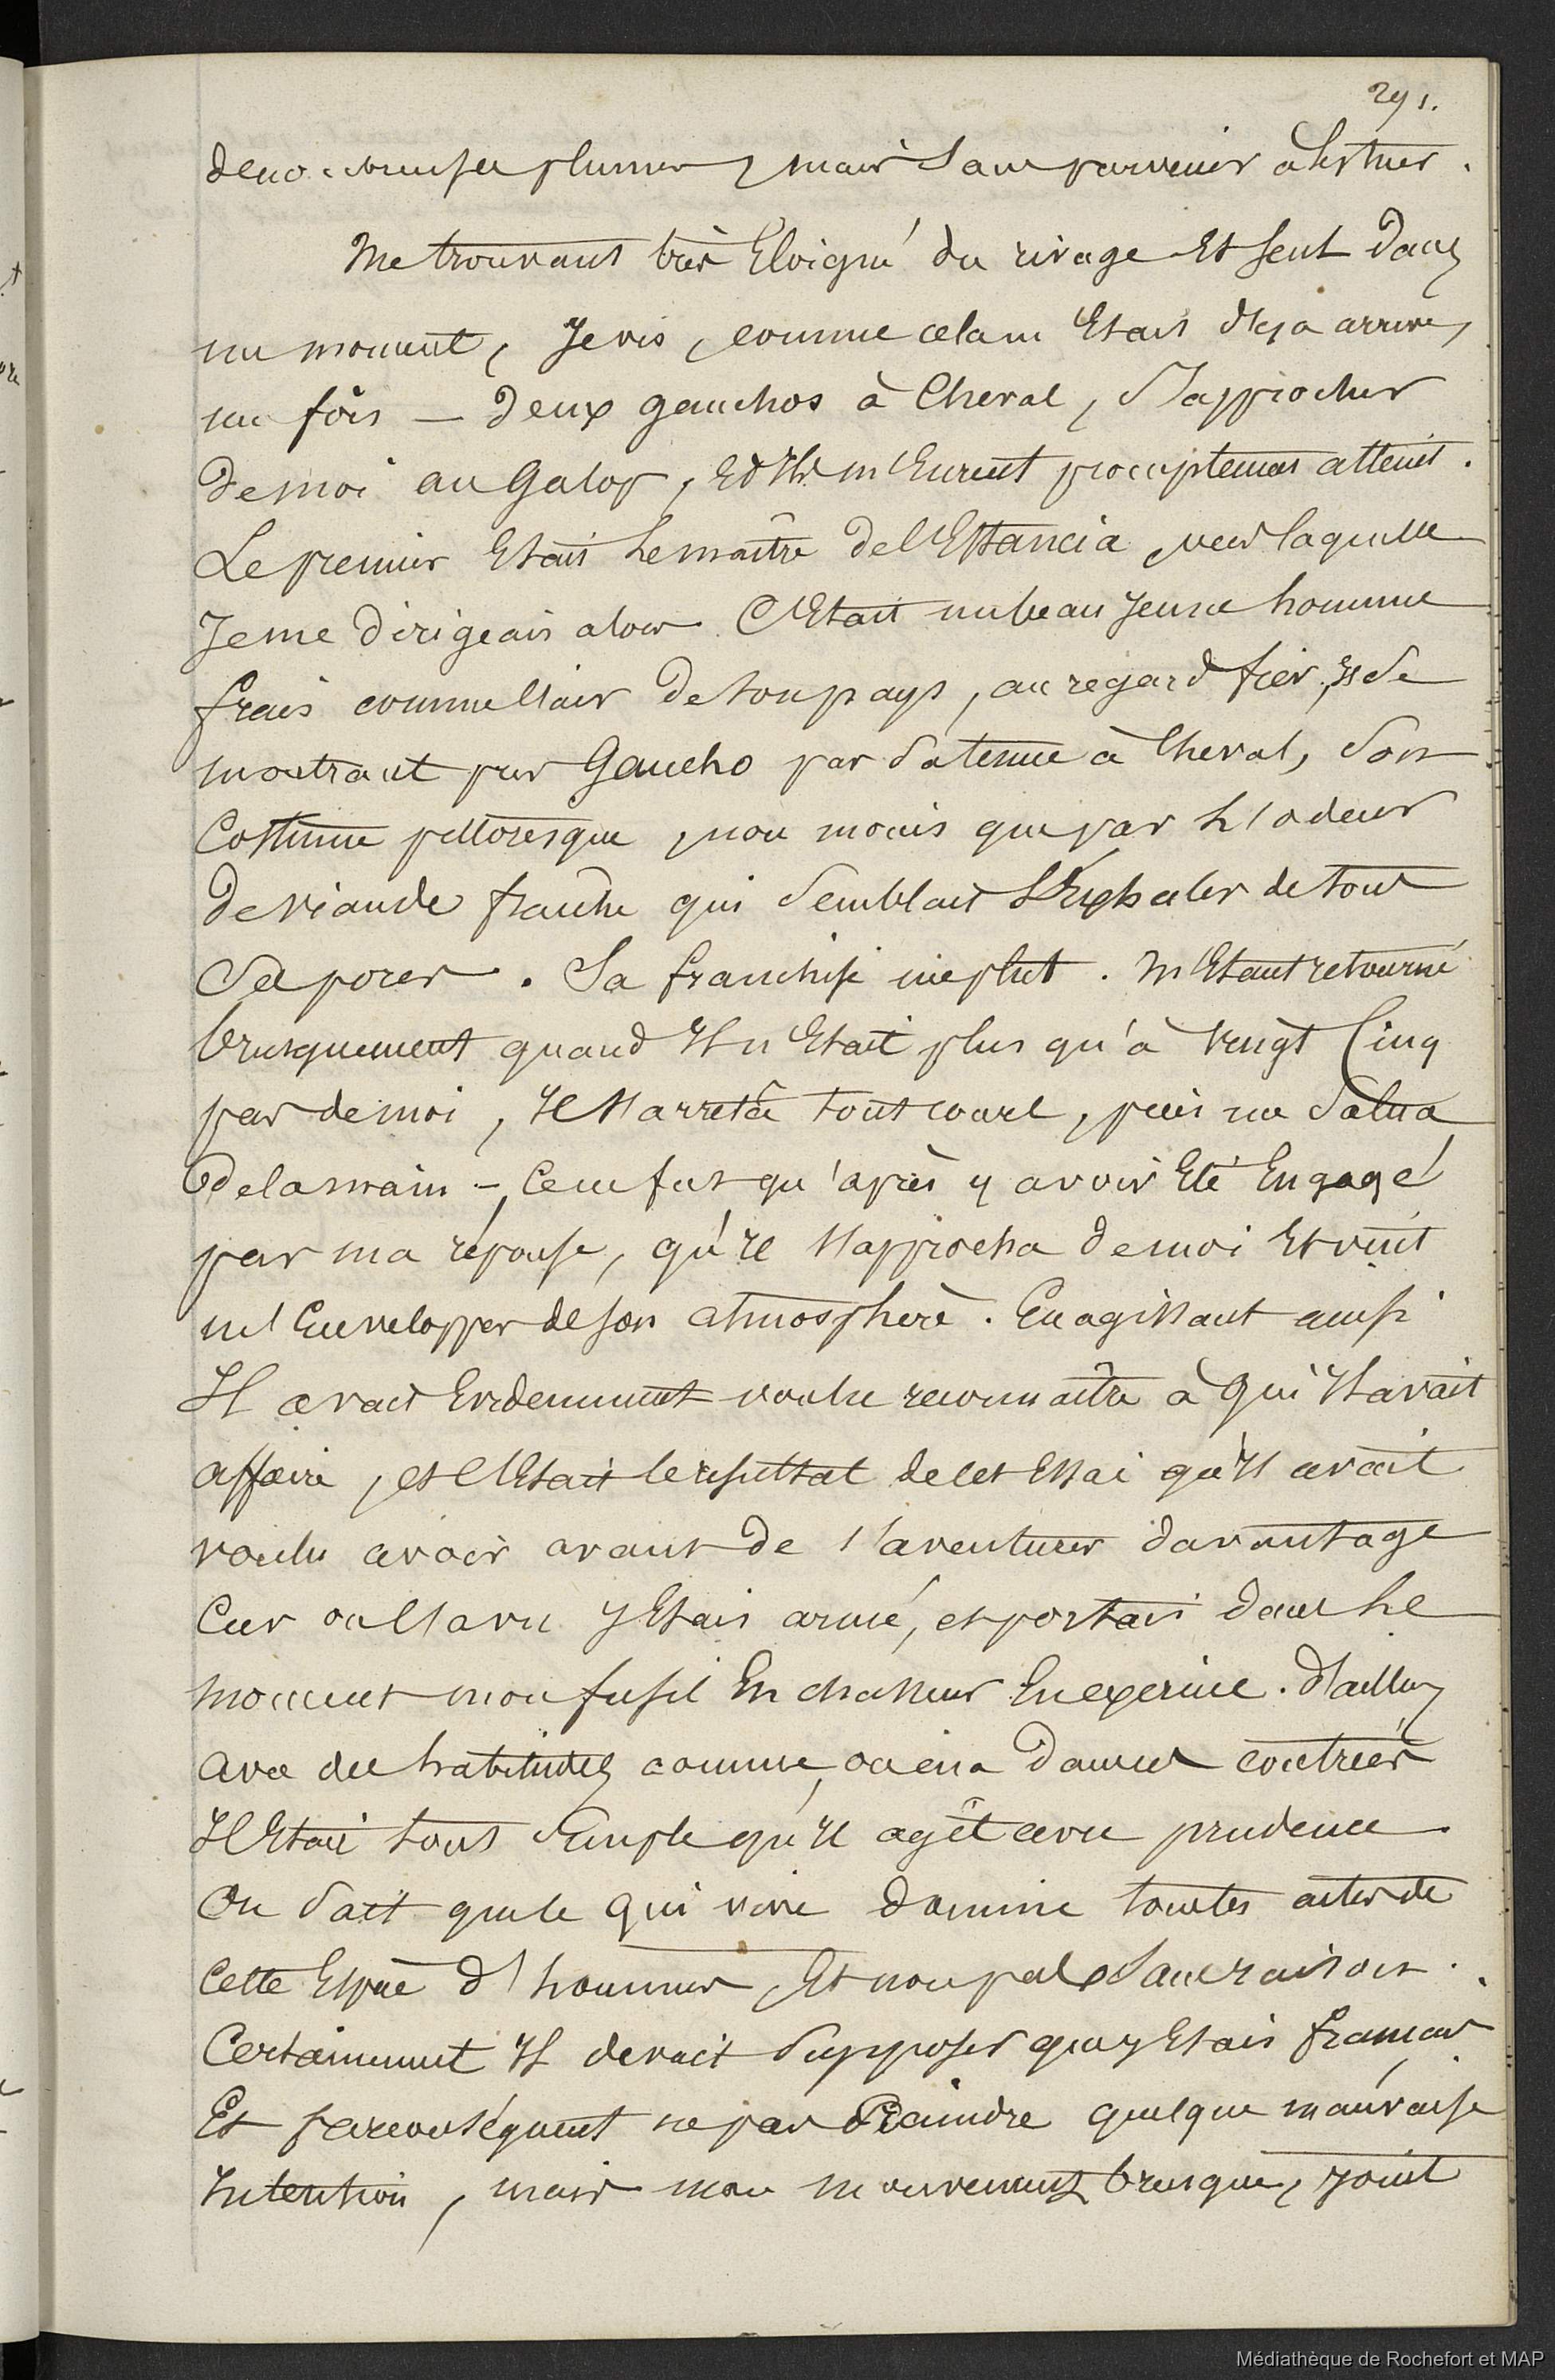 291.
plumes, mais sans parvenir à les tuer.
Me trouvant très Eloigné du rivage Et seul dans
un moment, Je vis, comme cela m'Etait déja arrivé,
une fois — deux gauchos à Cheval, S'approcher
de moi au Galop, Et Ils m'Eurent promptement atteint.
Le premier Etait le maître de l'Estancia, vers laquelle
Je me dirigeais alors. C'Etait un beau Jeune homme
frais comme l'air de son pays, au regard fier, Et Se
montrant pur Gaucho par Sa tenue à Cheval, Son
Costume pittoresque, non moins que par l'odeur
de viande fraîche qui Semblait S'Exhaler de tous
Ses pores. Sa franchise me plut. M'Etant retourné
brusquement quand Il n'Etait plus qu'à Vingt Cinq
pas de moi, Il s'arrêta tout court, puis me Salua
de la main – Ce ne fut qu'après y avoir Eté Engagé
par ma réponse, qu'Il s'approcha de moi Et vint
m'Envelopper de son atmosphère. En agissant ainsi
Il avait Evidemment voulu reconnaître à qui Il avait
affaire, et c'Etait le resultat de cet Essai qu'Il avait
voulu avoir avant de s'aventurer davantage
Car on l'a vu J'Etais armé, et portais dans le
moment mon fusil En chasseur Inexperimé. D'ailleurs
avec des habitudes comme on en a dans ces contrées
Il Etait tout Simple qu'Il agît avec prudence
On Sait que le qui vive domine tous les actes de
cette Espèce d'hommes, Et non pas Sans raison.
Certainement Il devait Supposer que j'Etais français
Et par conséquent ne pas Craindre quelque mauvaise
Intention, mais mon mouvement brusque, joint
Médiathèque de Rochefort et MAP